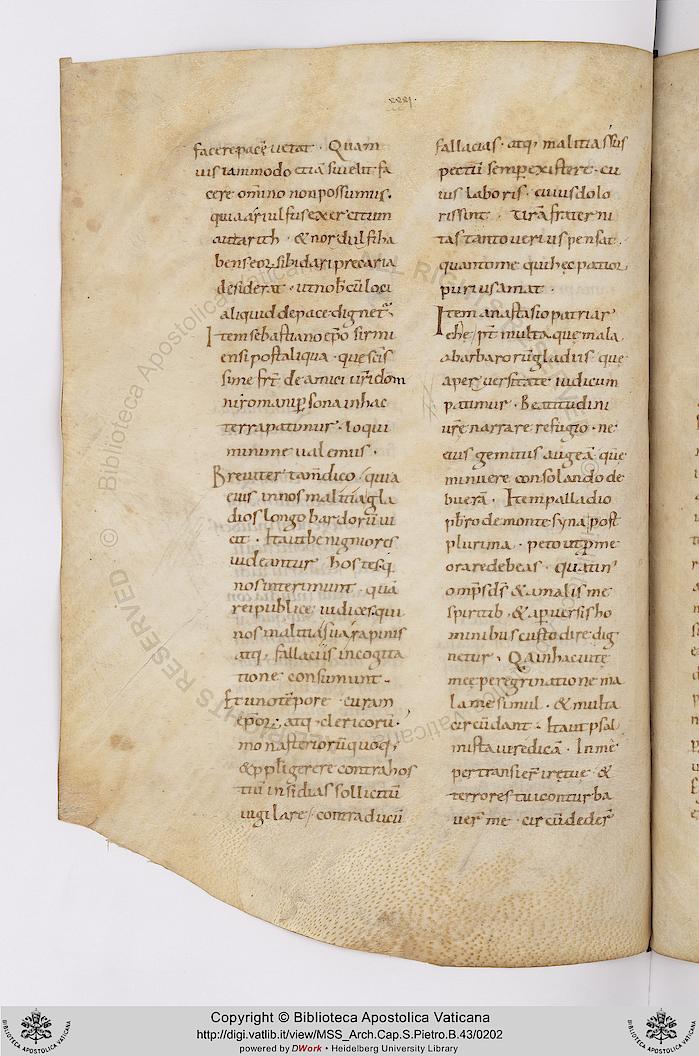 xxxi.
facere pacē uetat. Quam
uis iam modo etiā si uelit fa
cere om̄ino non possumus.
quia ariulfus exercitum
autarith. & nordulfi ha
bens eor̄ sibi dari precaria
desiderat. ut nob̄cū loci
aliquid de pace dignet᷑.
Item sebastiano ep̄o sirmi
ensi post aliqua. que sc̄is
sime fr̄t de amici ur̄i dom
ni romani p̱sona in hac
terra patimur. loqui
minime ualemus.
Breuiter tam̄ dico. quia
eius in nos malitia gla
dios longobardorū ui
cit. Ita ut benigniores
uideantur hostes q;
nos interimunt. quā
rei publice iudices qui
nos malitia sua rapinis
atq; fallaciis in cogita
tione consumunt.
Et uno tēpore curam
ep̄or̄. atq; clericorū.
monasteriorū quoq;
& pp̄li gerere contra hos
tiū insidias sollicitū
uigilare. contra ducū
fallacias. atq; malitias sus
pectū semp̱ existere. cu
ius laboris. cuius dolo
ris sint. ur̄a fraterni
tas tanto uerius pensat.
quanto me qui hec patior
purius amat.
Item anastasio patriar
che. p̄t multa que mala
a barbarorū gladiis que
a peruersitate iudicum
patimur. Beatitudini
ur̄e narrare refugio. ne
eius gemitus augeā. que
minuere consolando de
buerā. Item palladio
pb̄ro de monte syna post
plurima. peto ut p̱ me
orare debeas. quatin'
omp̄s d̄s & a malis me
spiritib; & a p̱uersis ho
minibus custodire dig
netur. Q̄a in hac uite
mee peregrinatione ma
la me simul. & multa
circūdant. Ita ut psal
mista uṟe dicā. In mē
pertransier̄ ire tue &
terrores tui conturba
uer̄ me. circūdeder̄
Copyright © Biblioteca Apostolica Vaticana
http://digi.vatlib.it/view/MSS_Arch.Cap.S.Pietro.B.43/0202
powered by DWork • Heidelberg University Library